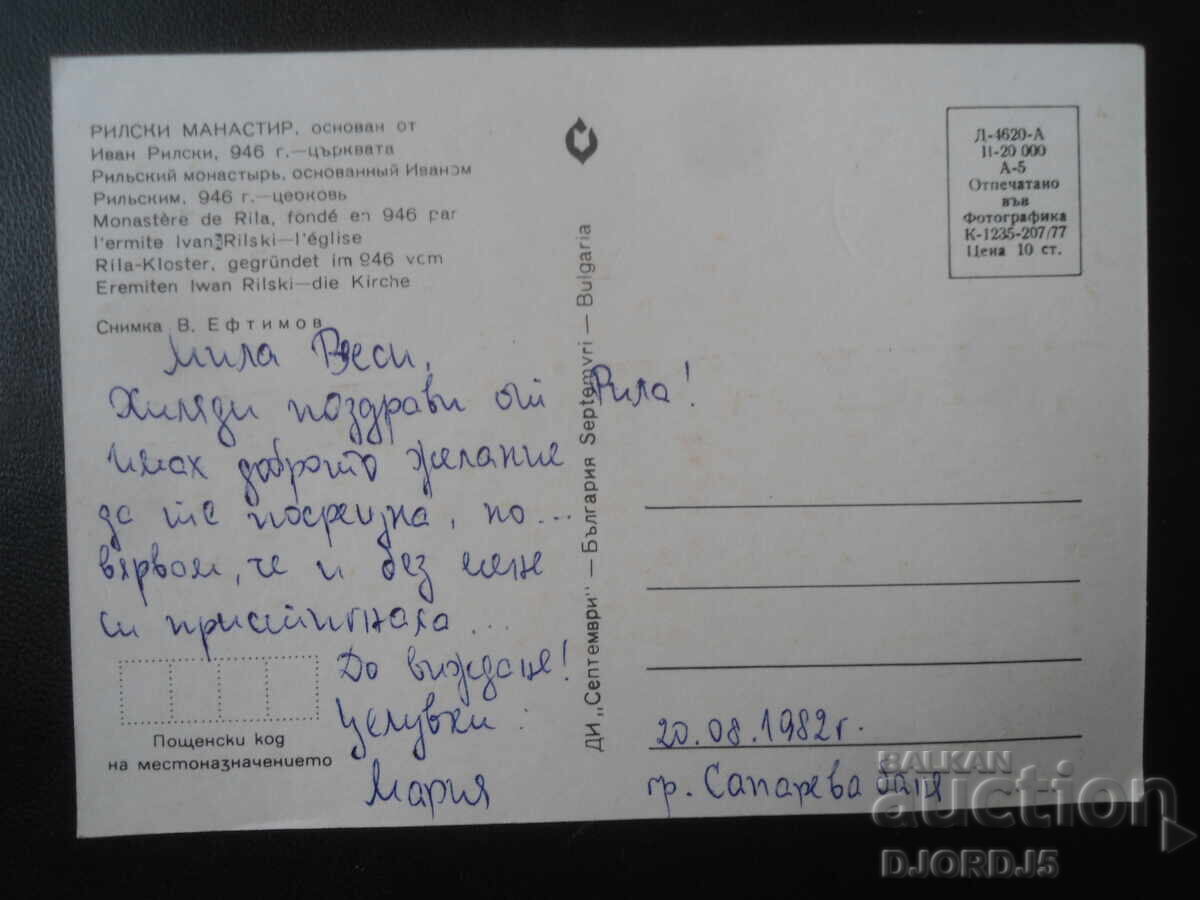 РИЛСКИ МАНАСТИР, основан от
Иван Рилски, 946 г.—църквата
Рильский монастырь, основанный Иваном
Рильским, 946 г.—церковь
Monastère de Rila, fondé en 946 par
l'ermite Ivan Rilski—l'église
Rila-Kloster, gegründet im 946 vom
Eremiten Iwan Rilski—die Kirche
Снимка В. Ефтимов
Мила Веси,
Хиляди поздрави от Рила!
Имах доброто желание
да те посрещна, но...
вярвам, че и без мене
си пристигнала...
До виждане!
Целувки:
Мария
Пощенски код
на местоназначението
ДИ „Септември" — България Septemvri — Bulgaria
Л-4620-А
П-20 000
А-5
Отпечатано
във
Фотографика
К-1235-207/77
Цена 10 ст.
20.08.1982 г.
гр. Сапарева баня
BALKAN
auction
DJORDJ5